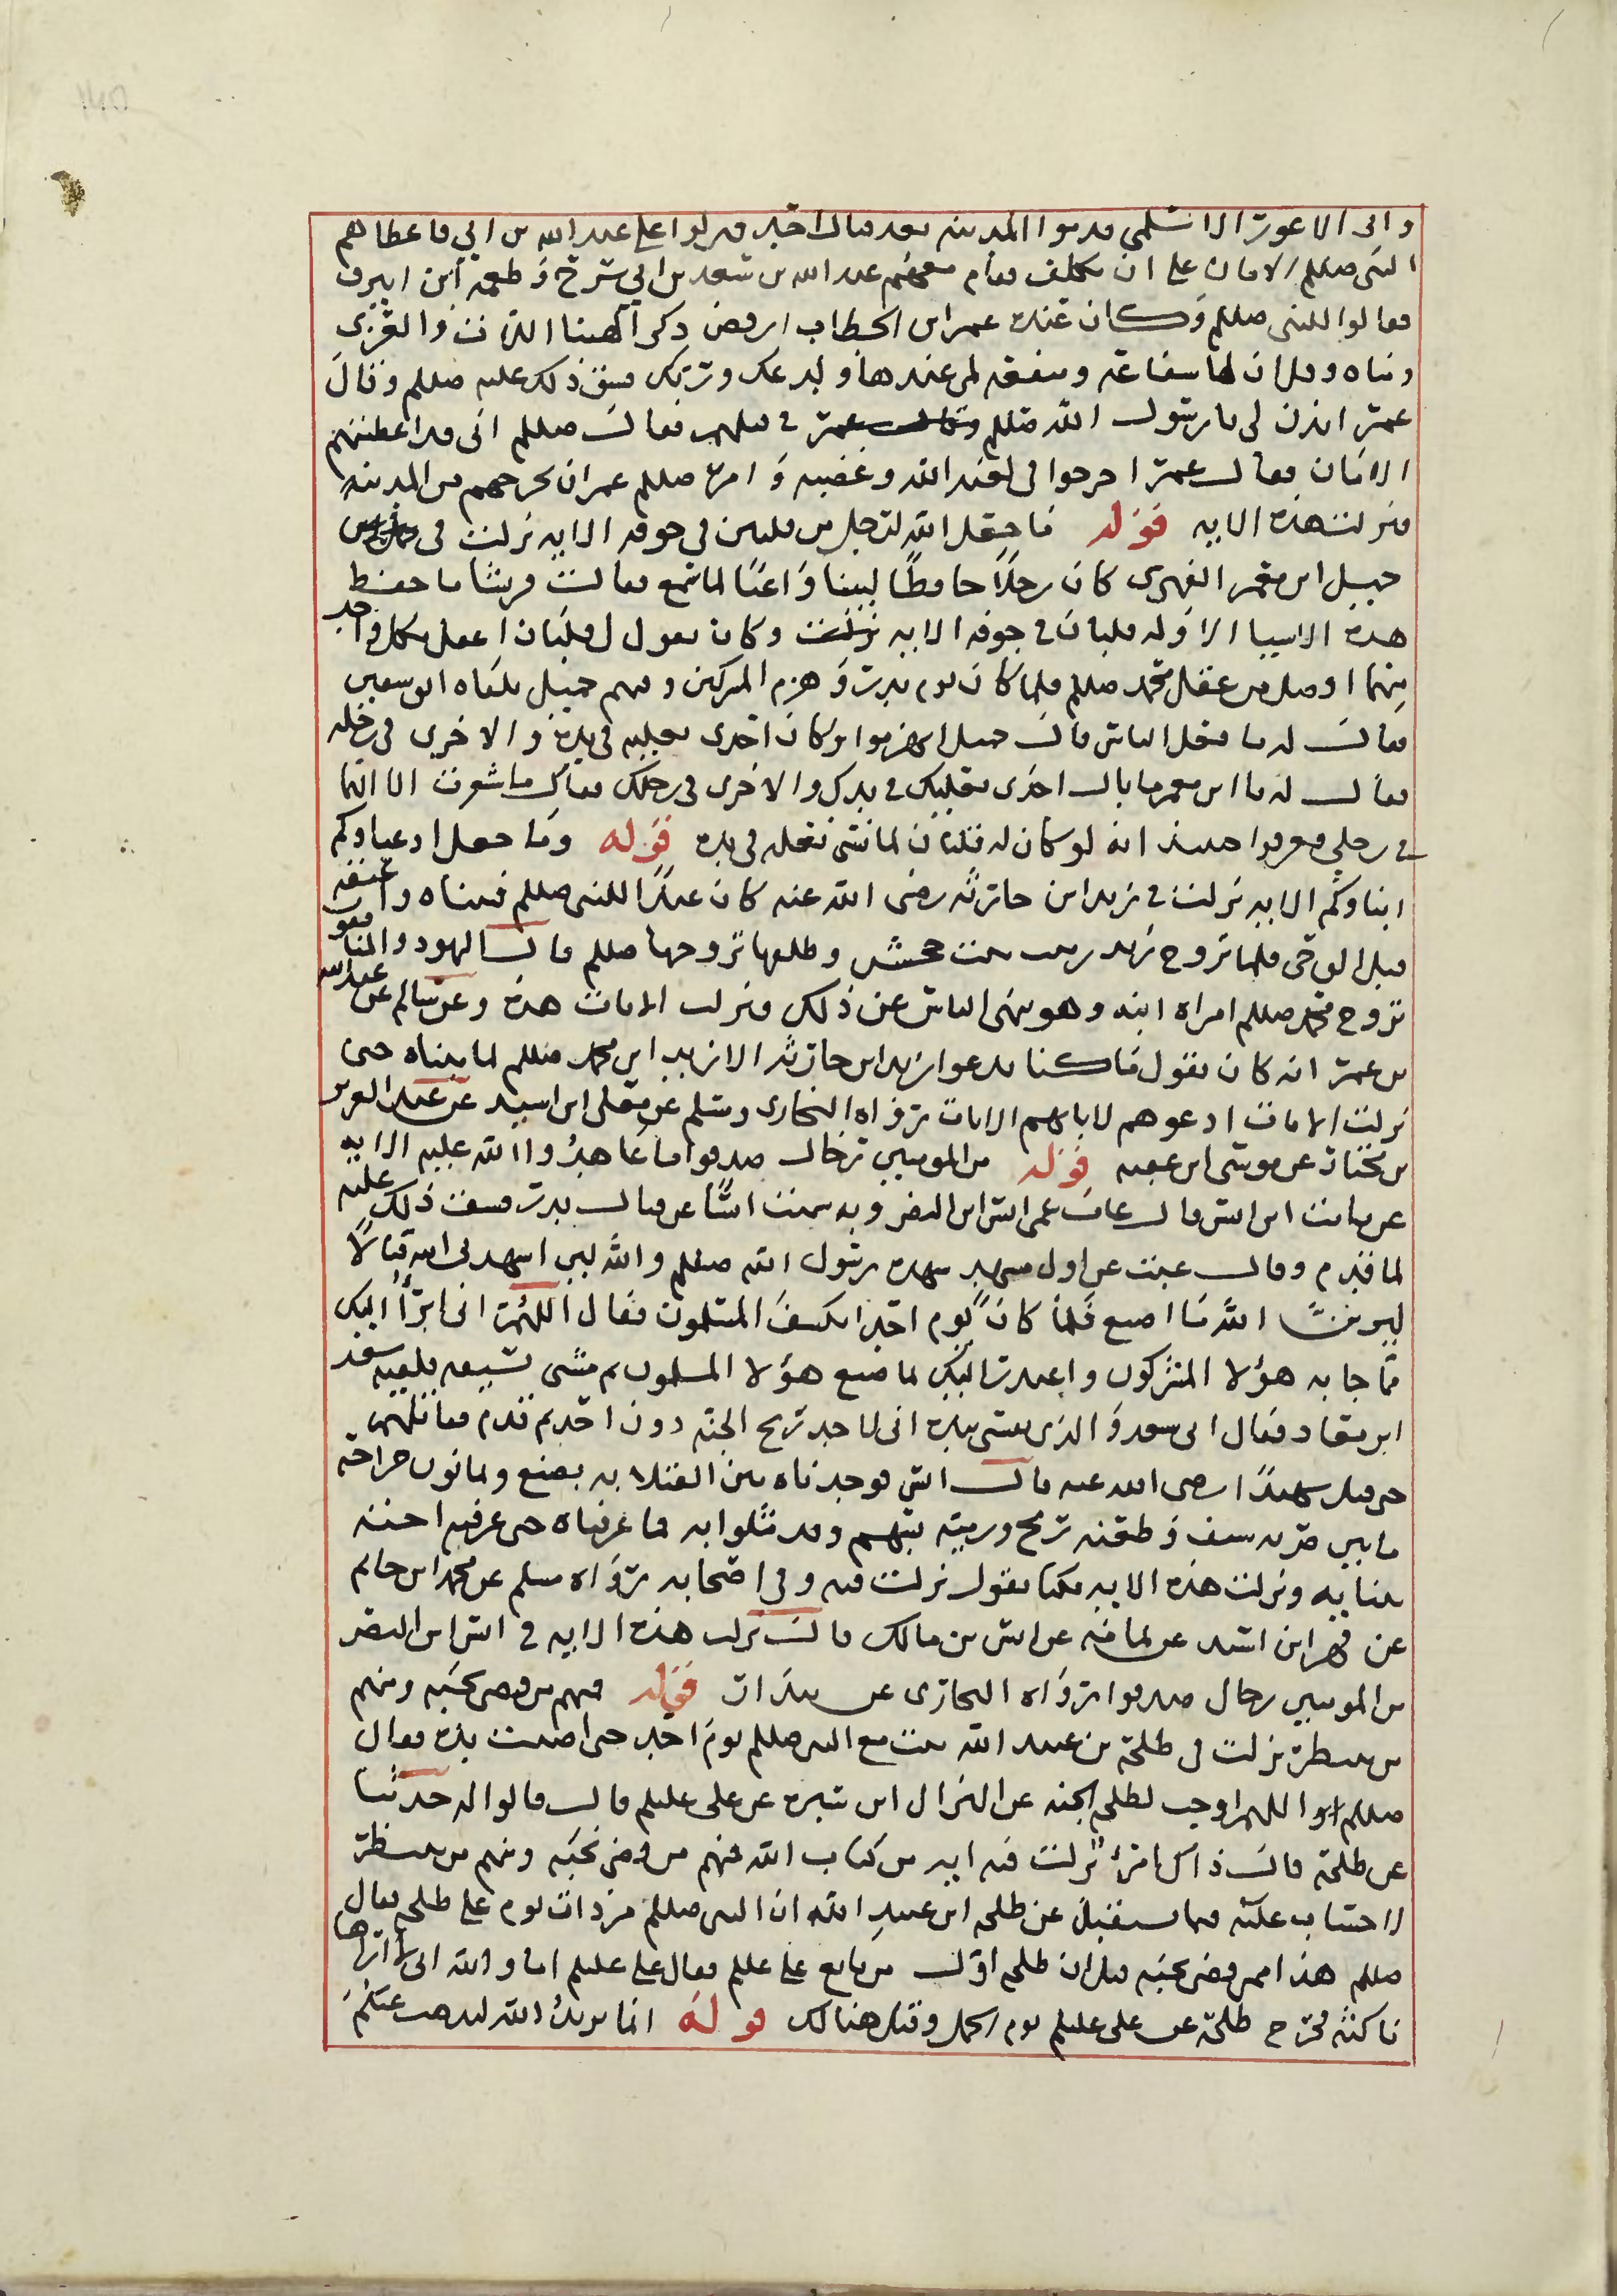 وابى الاعور الاسلمي قدموا المدينه بعد قتال احد فنزلوا على عبد الله بن ابي فاعطاهم
النبي صللم الامان على ان يكلموه فقام معهم عبد الله بن سعد بن ابي سرح وطعمه ابن ابيرق
فقالوا للنبي صللم وكان عنده عمر ابن الخطاب ارفض ذكر آلهتنا اللات والعزى
ومناه وقل ان لها شفاعة ومنفعه لمن عبدها وندعك وربك فشق ذلك عليه صللم وقال
عمر ائذن لي يا رسول الله صللم في قتلهم فقال صللم اني قد اعطيتهم
الامان فقال عمر اخرجوا في لعنه الله وغضبه وامر صللم عمر ان يخرجهم من المدينه
فنزلت هذه الايه قوله ما جعل الله لرجل من قلبين في جوفه الايه نزلت في
جميل ابن معمر الفهري كان رجلا حافظا لبيبا واعيا لما سمع فقالت قريش ما حفظ
هذه الاشيا الا وله قلبان في جوفه الايه نزلت وكان يقول لي قلبان اعقل بكل واحد
منهما افضل من عقل محمد صللم فلما كان يوم بدر وهزم المشركين وفيهم جميل تلقاه ابو سفين
فقال له ما فعل الناس قال جميل انهزموا وكان احدى نعليه في يده والاخرى في رجله
فقال له يا ابن معمر ما بال احدى نعليك في يدك والاخرى في رجلك فقال ما شعرت الا انهما
في رجلي فعرفوا حينئذ انه لو كان له قلبان لما نسي نعله في يده قوله وما جعل ادعياوكم
ابناوكم الايه نزلت في زيد ابن حارثه رضى الله عنه كان عبدا للنبي صللم فتبناه واعتقه
قبل الوحي فلما تزوج زيد زينب بنت جحش وطلقها تزوجها صللم قالت اليهود والمنافقون
تزوج محمد صللم امراه ابنه وهو ينهى الناس عن ذلك فنزلت الايات هذه وعن سالم عن عبد الله
بن عمر انه كان يقول ما كنا ندعوا زيد ابن حارثه الا زيد ابن محمد صللم لما تبناه حتى
نزلت الايات ادعوهم لابائهم الايات رواه البخاري ومسلم عن معلى ابن اسيد عن عبد العزيز
بن مختار عن موسى ابن عقبه قوله من المومنين رجال صدقوا ما عاهدوا الله عليه الايه
عن ثابت ابن انس قال غاب عمي انس ابن النضر وبه سميت انسا عن قتال بدر فشق ذلك عليه
لما قدم وقال غبت عن اول مشهد شهده رسول الله صللم والله لين اشهدني الله قتالا
ليرين الله ما اصنع فلما كان يوم احد انكشف المسلمون فقال اللهم اني ابرأ اليك
مما جا به هؤلا المشركون واعتذر اليك لما صنع هؤلا المسلمون ثم مشى بسيفه فلقيه سعد
ابن معاد فقال اي سعد والذي نفسي بيده اني لاجد ريح الجنه دون احد ثم تقدم فقاتلهم
حتى قتل شهيدا رضى الله عنه قال انس فوجدناه بين القتلا به بضع وثمانون جراحه
ما بين ضربه بسيف وطعنه رمح ورميته بسهم وقد مثلوا به فما عرفناه حتى عرفته اخته
ببنانه ونزلت هذه الايه فكنا نقول نزلت فيه وفي اصحابه رواه مسلم عن محمد ابن حاتم
عن ابن اسد عن ثمامه عن انس بن مالك قال نزلت هذه الايه في انس ابن النضر
من المومنين رجال صدقوا رواه البخارى عن بندار قوله فمنهم من قضى نحبه ومنهم
من ينتظر نزلت في طلحة بن عبيد الله ثبت مع النبي صللم يوم احد حتى اصيبت يده فقال
صللم اللهم اوجب لطلحه الجنه عن النزال ابن سبره عن علي عليلم قال قالوا له حدثنا
عن طلحة قال ذاك امرؤ نزلت فيه ايه من كتاب الله فمنهم من قضى نحبه ومنهم من ينتظر
لا حساب عليه فيما يستقبل عن طلحه ابن عبيد الله ان النبي صللم مر ذات يوم على طلحه فقال
صللم هذا ممن قضى نحبه قيل ان طلحه اول من بايع على عللم فقال على عليلم اما والله اني لا اراها
ناكثه فخرج طلحة عن على عليلم يوم الجمل وقتل هنالك قوله انما يريد الله ليذهب عنكم